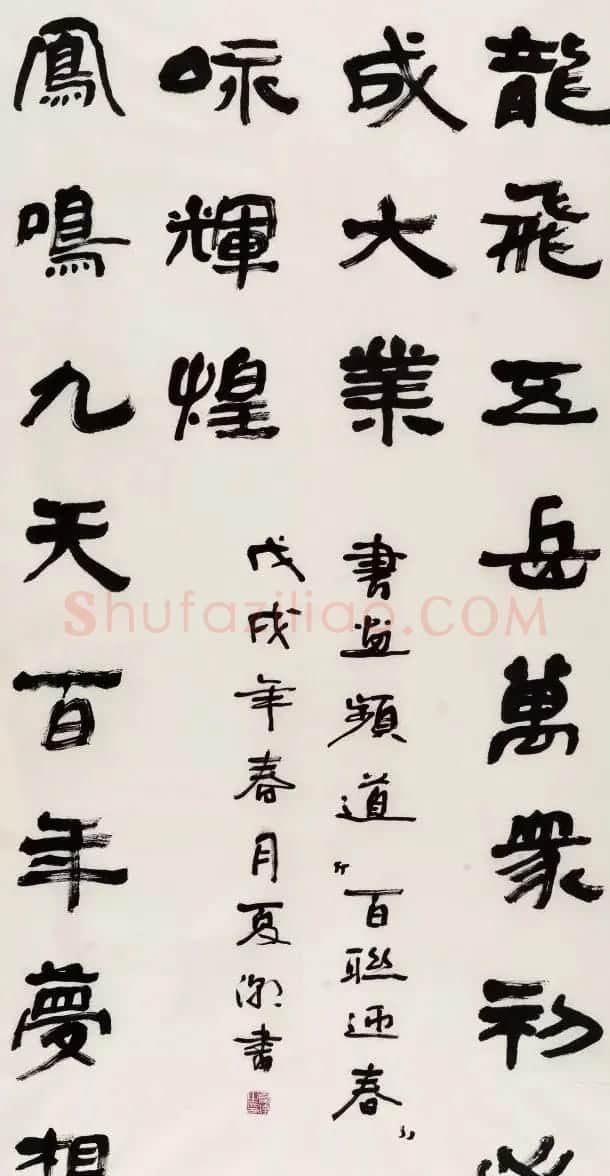 龍飛五岳萬衆初心
成大業
鳳鳴九天百年夢想
咏輝煌
書畫頻道“百聯迎春”
戊戌年春月夏潮書
Shufaziliao.COM